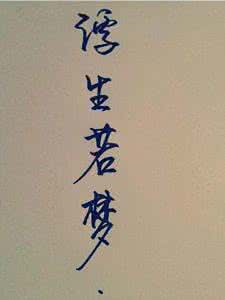 浮生若梦.